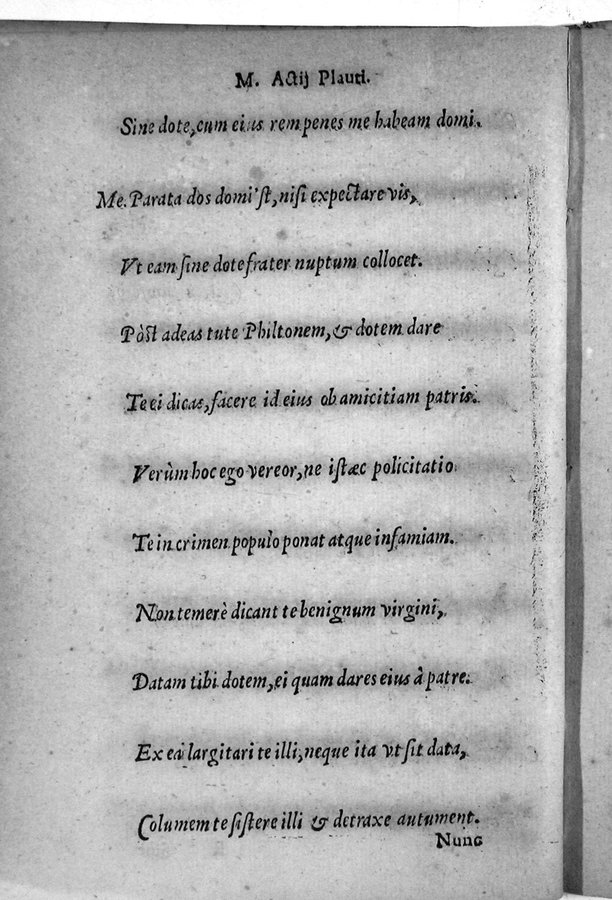 M. Actij Plauti.
Sine dote, cum eius rem penes me habeam domi.
Me. Parata dos domi'st, nisi expectare vis,
Vt eam sine dote frater nuptum collocet.
Pòst adeas tute Philtonem, & dotem dare
Te ei dicas, facere id eius ob amicitiam patris.
Verùm hoc ego vereor, ne istæc policitatio
Te in crimen populo ponat atque infamiam.
Non temerè dicant te benignum virgini,
Datam tibi dotem, ei quam dares eius à patre.
Ex ea largitari te illi, neque ita vt sit data,
Columem te sistere illi & detraxe autument.
Nunc